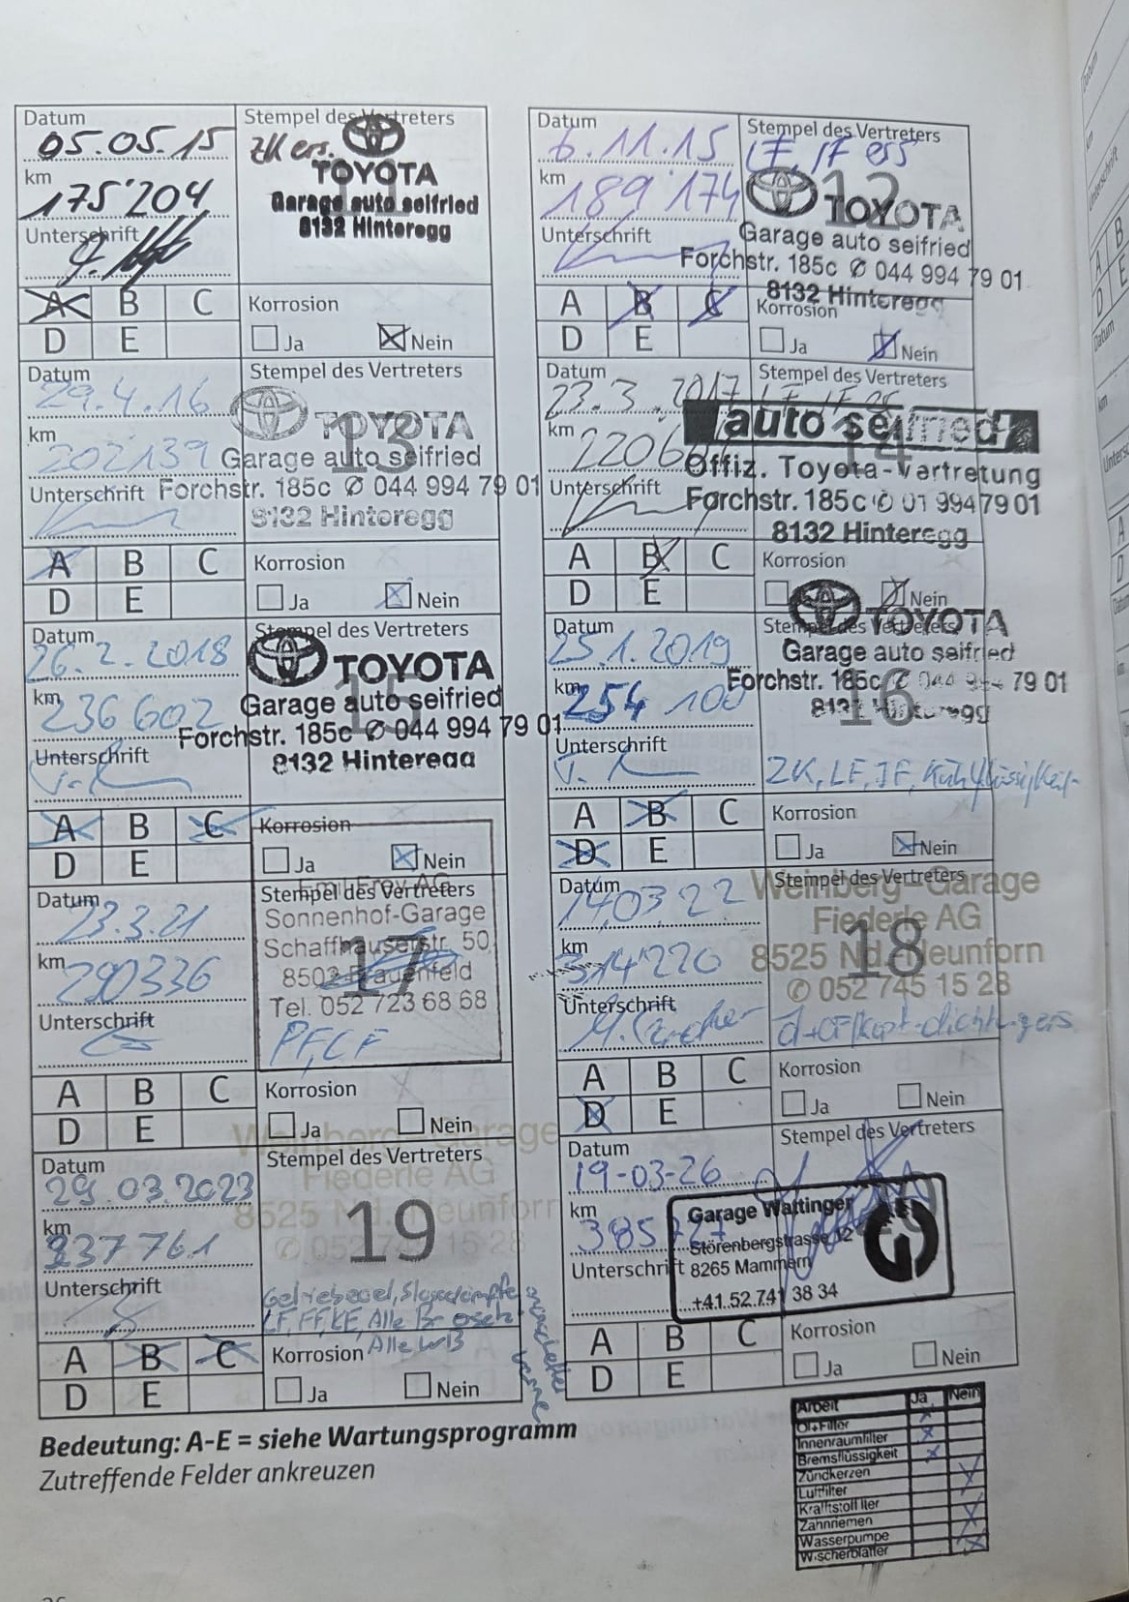 Datum
05.05.15
km
175'204
Unterschrift
Stempel des Vertreters
ZK ers.
TOYOTA
Garage auto seifried
8132 Hinteregg
A B C
D E
Korrosion
Ja Nein
Datum
6.11.15
km
189'174
Unterschrift
Stempel des Vertreters
12
LF, IF ers
TOYOTA
Garage auto seifried
Forchstr. 185c ✆ 044 994 79 01
8132 Hinteregg
A B C
D E
Korrosion
Ja Nein
Datum
29.4.16
km
202139
Unterschrift
Stempel des Vertreters
13
TOYOTA
Garage auto seifried
Forchstr. 185c ✆ 044 994 79 01
8132 Hinteregg
A B C
D E
Korrosion
Ja Nein
Datum
23.3.2017
km
2206
Unterschrift
Stempel des Vertreters
14
auto seifried
Offiz. Toyota-Vertretung
Forchstr. 185c ✆ 01 994 79 01
8132 Hinteregg
A B C
D E
Korrosion
Nein
Datum
26.2.2018
km
236 602
Unterschrift
Stempel des Vertreters
15
TOYOTA
Garage auto seifried
Forchstr. 185c ✆ 044 994 79 01
8132 Hinteregg
A B C
D E
Korrosion
Ja Nein
Datum
25.1.2019
km
254 100
Unterschrift
Stempel des Vertreters
16
TOYOTA
Garage auto seifried
Forchstr. 185c ✆ 044 994 79 01
8132 Hinteregg
ZK, LF, IF, Kühlflüssigkeit
A B C
D E
Korrosion
Ja Nein
Datum
23.3.21
km
290336
Unterschrift
Stempel des Vertreters
17
Emil Frey AG
Sonnenhof-Garage
Schaffhauserstr. 50
8503 Frauenfeld
Tel. 052 723 68 68
PF, CF
A B C
D E
Korrosion
Ja Nein
Datum
14.03.22
km
314220
Unterschrift
Stempel des Vertreters
18
Weinberg-Garage
Fiederle AG
8525 Nd. Neunforn
✆ 052 745 15 28
A B C
D E
Korrosion
Ja Nein
Datum
29.03.2023
km
337761
Unterschrift
Stempel des Vertreters
19
Weinberg-Garage
Fiederle AG
8525 Nd. Neunforn
✆ 052 745 15 28
LF, FF, KF, Alle
Alle
A B C
D E
Korrosion
Ja Nein
Datum
19-03-26
km
385727
Unterschrift
Stempel des Vertreters
Garage Wattinger
Störenbergstrasse 12
8265 Mammern
+41.52.741 38 34
A B C
D E
Korrosion
Ja Nein
Bedeutung: A-E = siehe Wartungsprogramm
Zutreffende Felder ankreuzen
Arbeit Ja Nein
Öl+Filter
Innenraumfilter
Bremsflüssigkeit
Zündkerzen
Luftfilter
Kraftstoffilter
Zahnriemen
Wasserpumpe
Wischerblätter